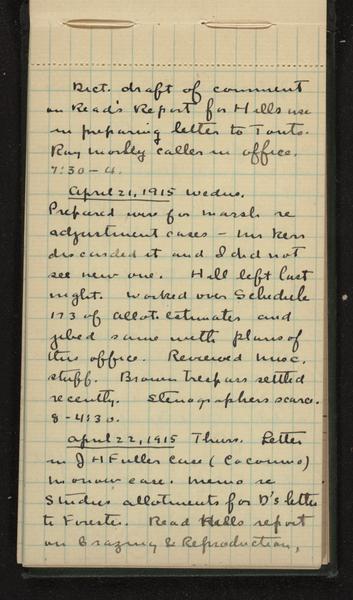 Dict. draft of comment
on Read's Report for Hills use
in preparing letter to
Ray Morley caller in office.
7:30 - 4.
April 21, 1915 Wednes.
Prepared wire for Marsh re
adjustment cases - Mr Kerr
discarded it and I did not
see new one. Hill left last
night. Worked over Schedule
173 of allot. estimates and
jibed same with plans of
this office. Reviewed misc.
stuff. Brown trespass settled
recently. Stenographers scarce.
8 - 4:30.
April 22, 1915 Thurs. Letter
in J H Fuller Case (Coconino)
case. Memo re
Studies allotments for D's letter
to Forester. Read Hills report
on Grazing & Reproduction,